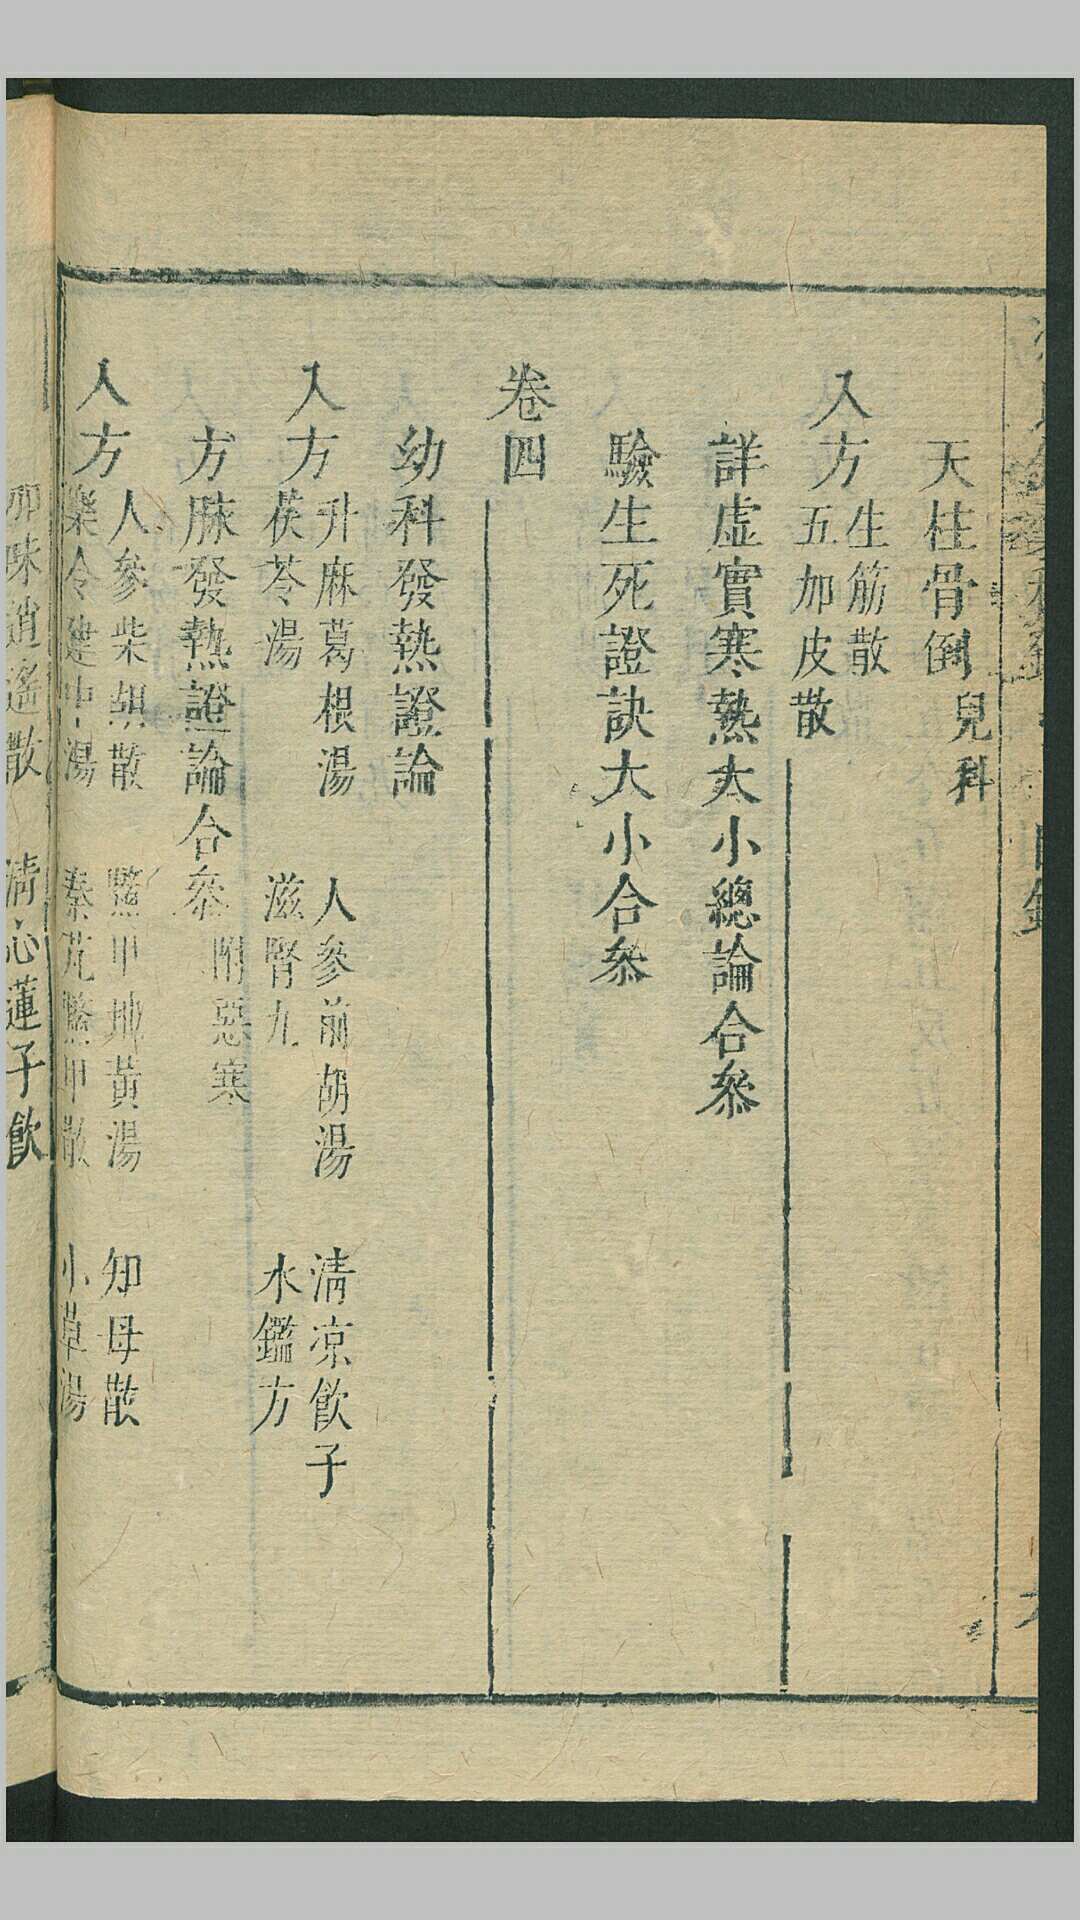 天柱骨倒 兒科
入方 生筋散
五加皮散
詳虛實寒熱大小總論合叅
驗生死證訣大小合叅
卷四
幼科發熱證論
入方 升麻葛根湯 人參前胡湯 清凉飲子
茯苓湯 滋腎丸 水鑑方
方脉發熱證論合叅 附惡寒
入方 人參柴胡散 鱉甲地黃湯 知母散
樂令建中湯 秦艽鱉甲散 小草湯
味逍遙散 清心蓮子飲